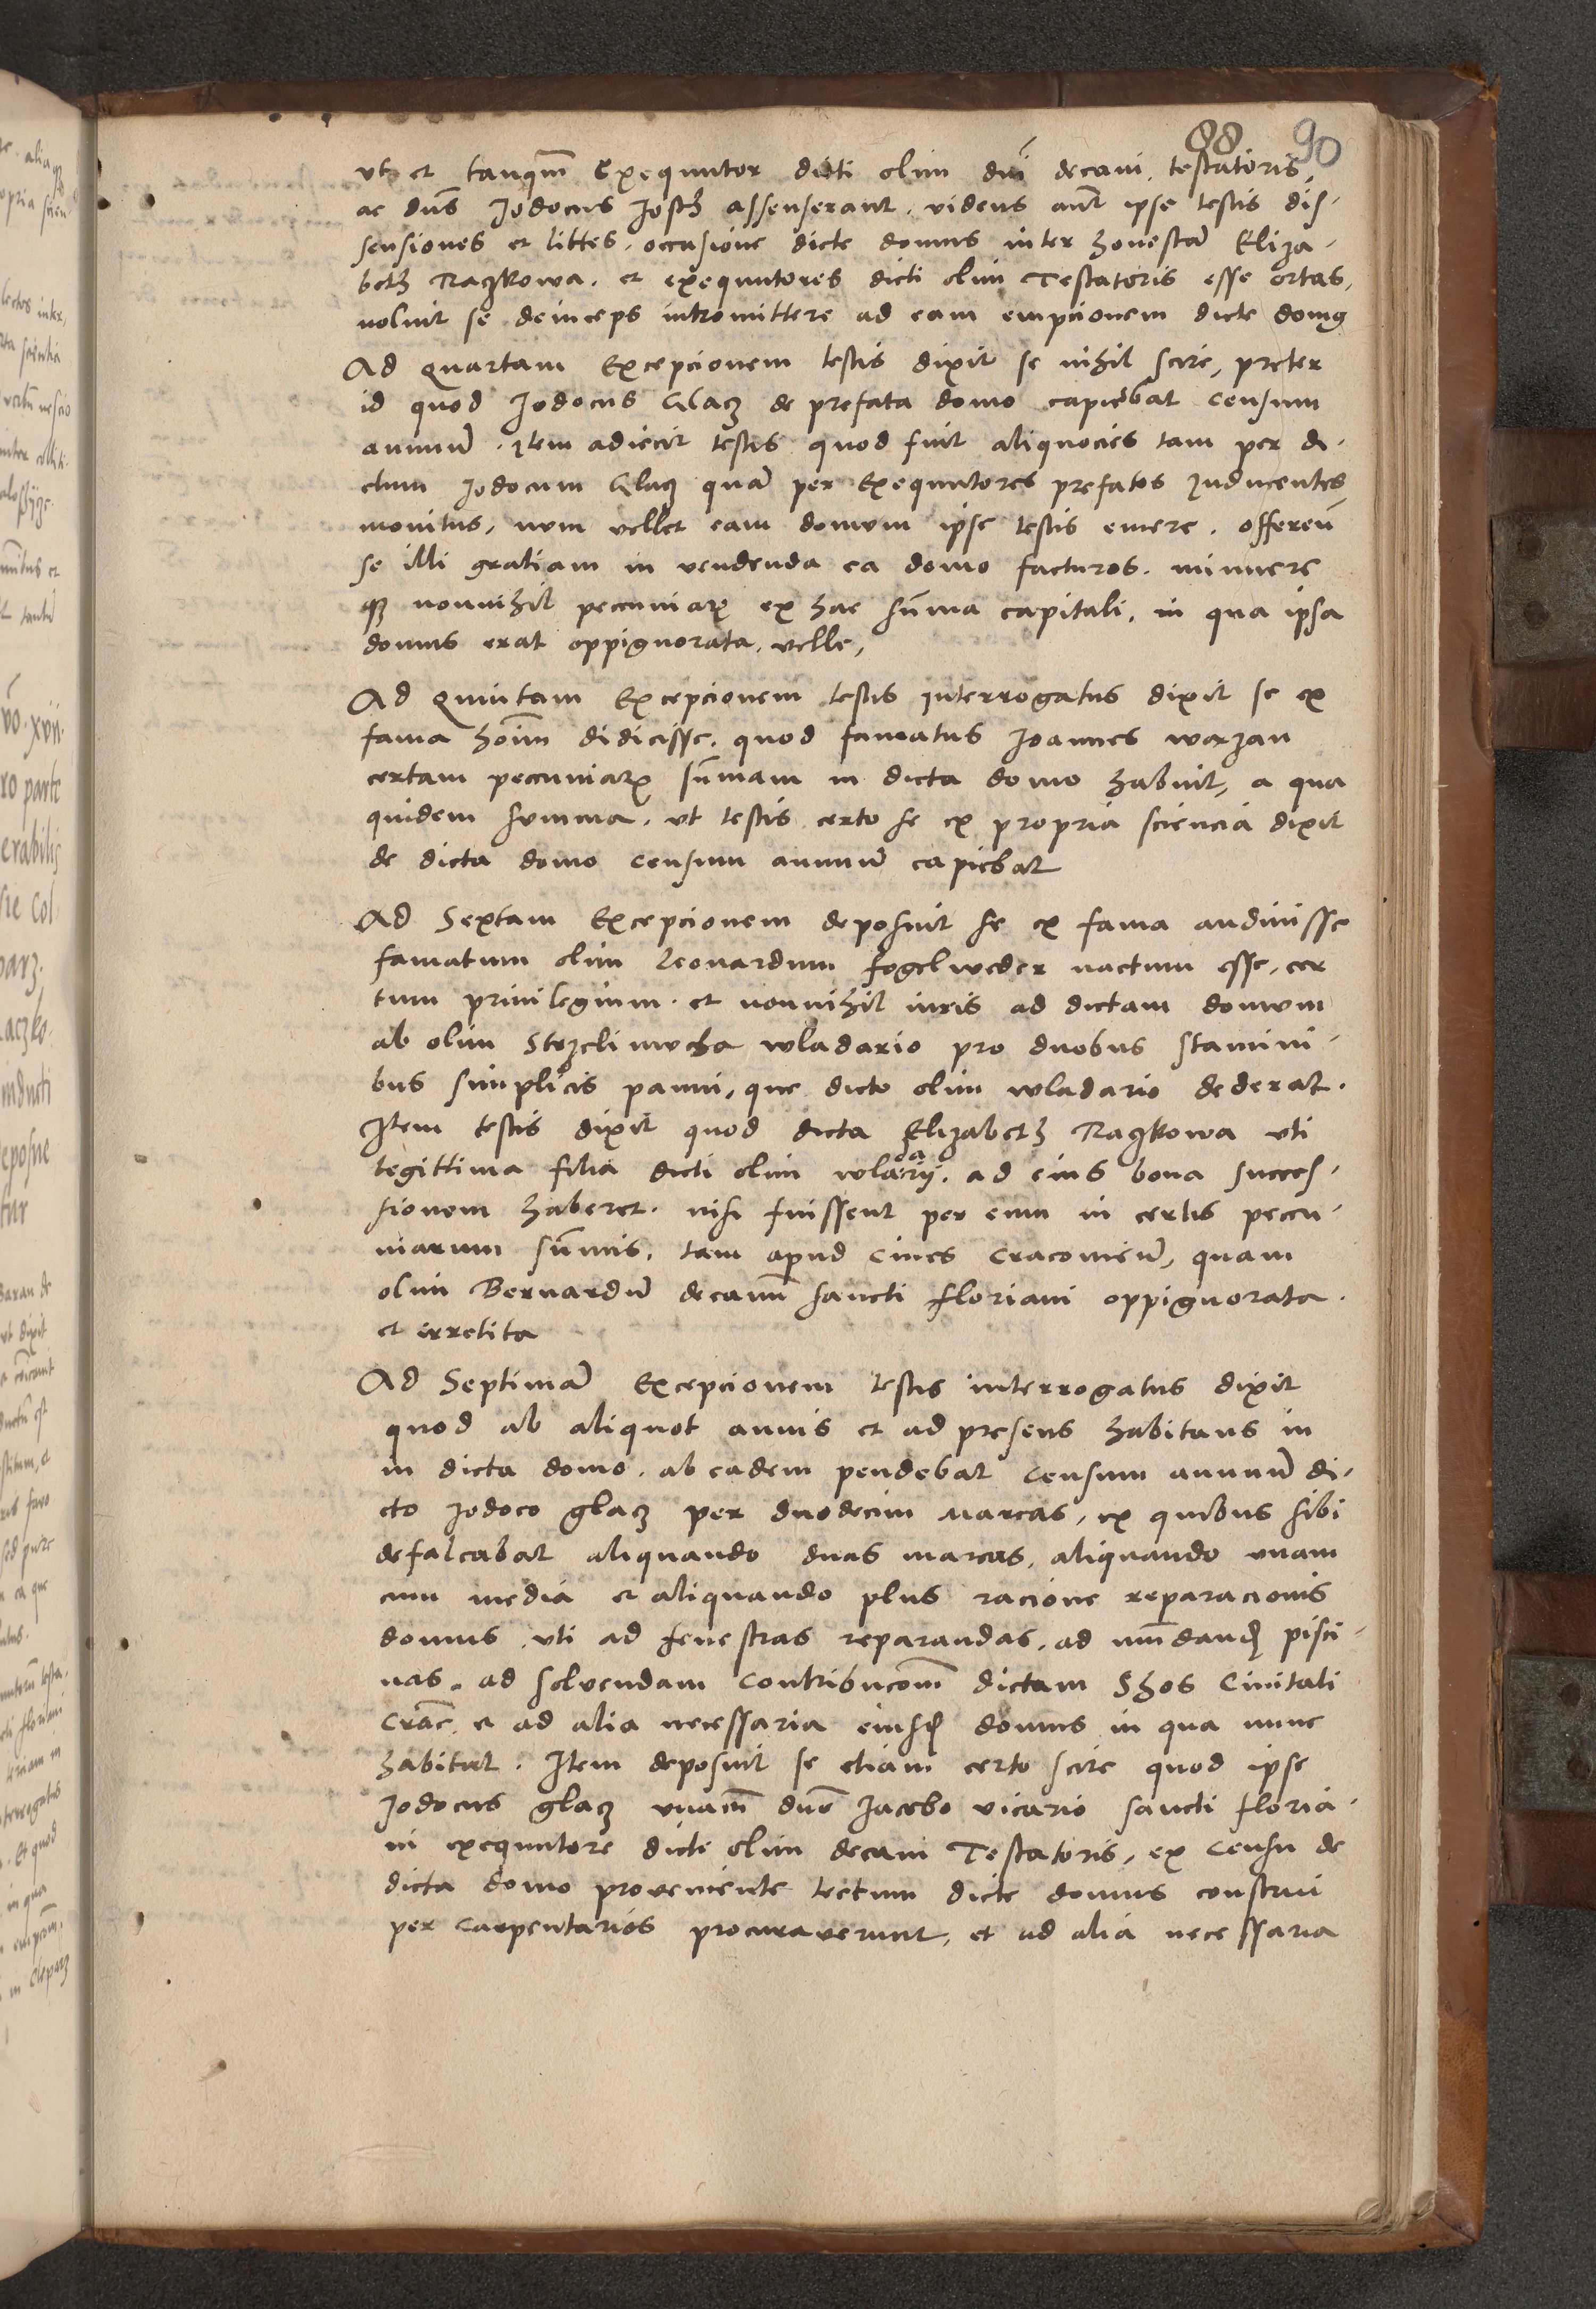 88 90
ut et tanqm̄ Exequutor dicti olim dn̄i decani, testatoris,
ac dn̄s Jodocus Josth assenserant. videns aūt ipse testis dis-
sensiones et littes, occasione dicte domus inter honestā Eliza-
beth Raczkowa. et exequutores dicti olim Testatoris esse ortas,
noluit se deinceps intromittere ad eam empcionem dicte domq
Ad quartam Excepcionem testis dixit se nihil scire, preter
id quod Jodocus Glacz de prefata domo capiebat censum
annuū. Item adiecit testis quod fuit aliquocies tam per di-
ctum Jodocum Glacz quā per Exequutores prefatos Inducentes
monitus, num vellet eam domum ipse testis emere. offereñ
se illi gratiam in vendenda ea domo facturos. minuere
qȝ nonnihil peccuniarꝝ ex hac sūma capitali, in qua ipsa
domus erat oppignorata, velle,
Ad quintam Excepcionem testis interrogatus dixit se ex
fama hoīm didicisse. quod famatus Joannes warzan
certam peccuniarꝝ sūmam in dicta domo habuit, a qua
quidem summa. ut testis certo se ex propria sciencia dixit
de dicta domo censum annuū capiebat
Ad Sextam Excepcionem deposuit se ex fama audiuisse
famatum olim Leonardum fogelweder nactum esse, cer
tum priuilegium. et nonnihil iuris ad dictam domum
ab olim Strzelimucha wladario pro duobus stamini-
bus simplicis panni, que dicto olim wladario dederat.
Item testis dixit quod dicta Elizabeth Raczkowa uti
legittima filia dicti olim wladarij. ad eius bona succes-
sionem haberet. nisi fuissent per eum in certis peccu-
niarum sūmis, tam apud ciues cracouieñ, quam
olim Bernardū decanū sancti floriani oppignorata.
et irretita
Ad Septimā Excepcionem testis interrogatus dixit
quod ab aliquot annis et ad presens habitans in
in dicta domo. ab eadem pendebat censum annuū di-
cto Jodoco glacz per duodecim marcas, ex quibus sibi
defalcabat aliquando duas marcas, aliquando unam
cum media et aliquando plus racione reparacionis
domus. uti ad fenestras reparandas. ad mūdand pisci-
nas. ad soluendam contribucōm dictam Shos Ciuitati
Crac̄. et ad alia necessaria eiusd domus in qua nunc
habitat. Item deposuit se etiam certo scire quod ipse
Jodocus glacz unam̄ dn̄o Jacobo vicario sancti floria-
ni exequutore dicti olim decani Testatoris, ex censu de
dicta domo proueniente tectum dicte domus construi
per carpentarios procurauerunt, et ad alia necessaria